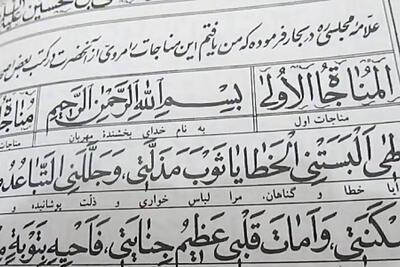 علامه مجلسی ره در بحار فرموده که من یافتم این مناجات را مروی از آنحضرت در کتب بعض
المناجاة الأولی بسم الله الرحمن الرحیم
مناجات اول به نام خدای بخشندهٔ مهربان
اَلْبَسَتْنِی الْخَطایا ثَوْبَ مَذَلَّتی، وَجَلَّلَنِی التَّباعُدُ
خطا و گناهان، مرا لباس خواری و ذلت پوشانیده و
وَاَماتَ قَلْبی عَظیمُ جِنایَتی، فَاَحْیِهِ بِتَوْبَةٍ